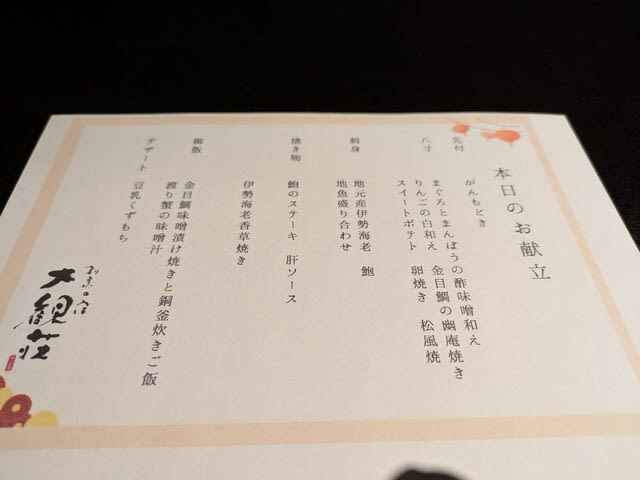 本日のお献立
先付
がんもどき
八寸
まぐろとまんぼうの酢味噌和え
りんごの白和え 金目鯛の幽庵焼き
スイートポテト 卵焼き 松風焼
刺身
地元産伊勢海老 鮑
地魚盛り合わせ
焼き物
鮑のステーキ 肝ソース
伊勢海老香草焼き
御飯
金目鯛味噌漬け焼きと銅釜炊きご飯
渡り蟹の味噌汁
デザート
豆乳くずもち
大観荘